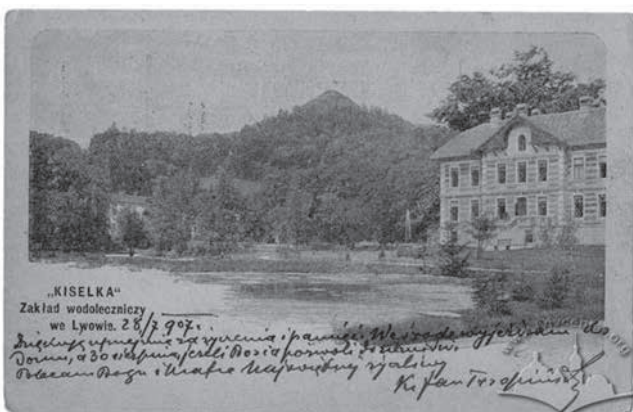 „KISELKA"
Zakład wodoleczniczy
we Lwowie. 28/7 907.
Dziękuję uprzejmie za życzenia i pamięć. We środę wyjeżdżam do
Domu, a 30 sierpnia, jeśli Bozia pozwoli
Polecam Bogu i Matce Najświętszej
Ks. Jan